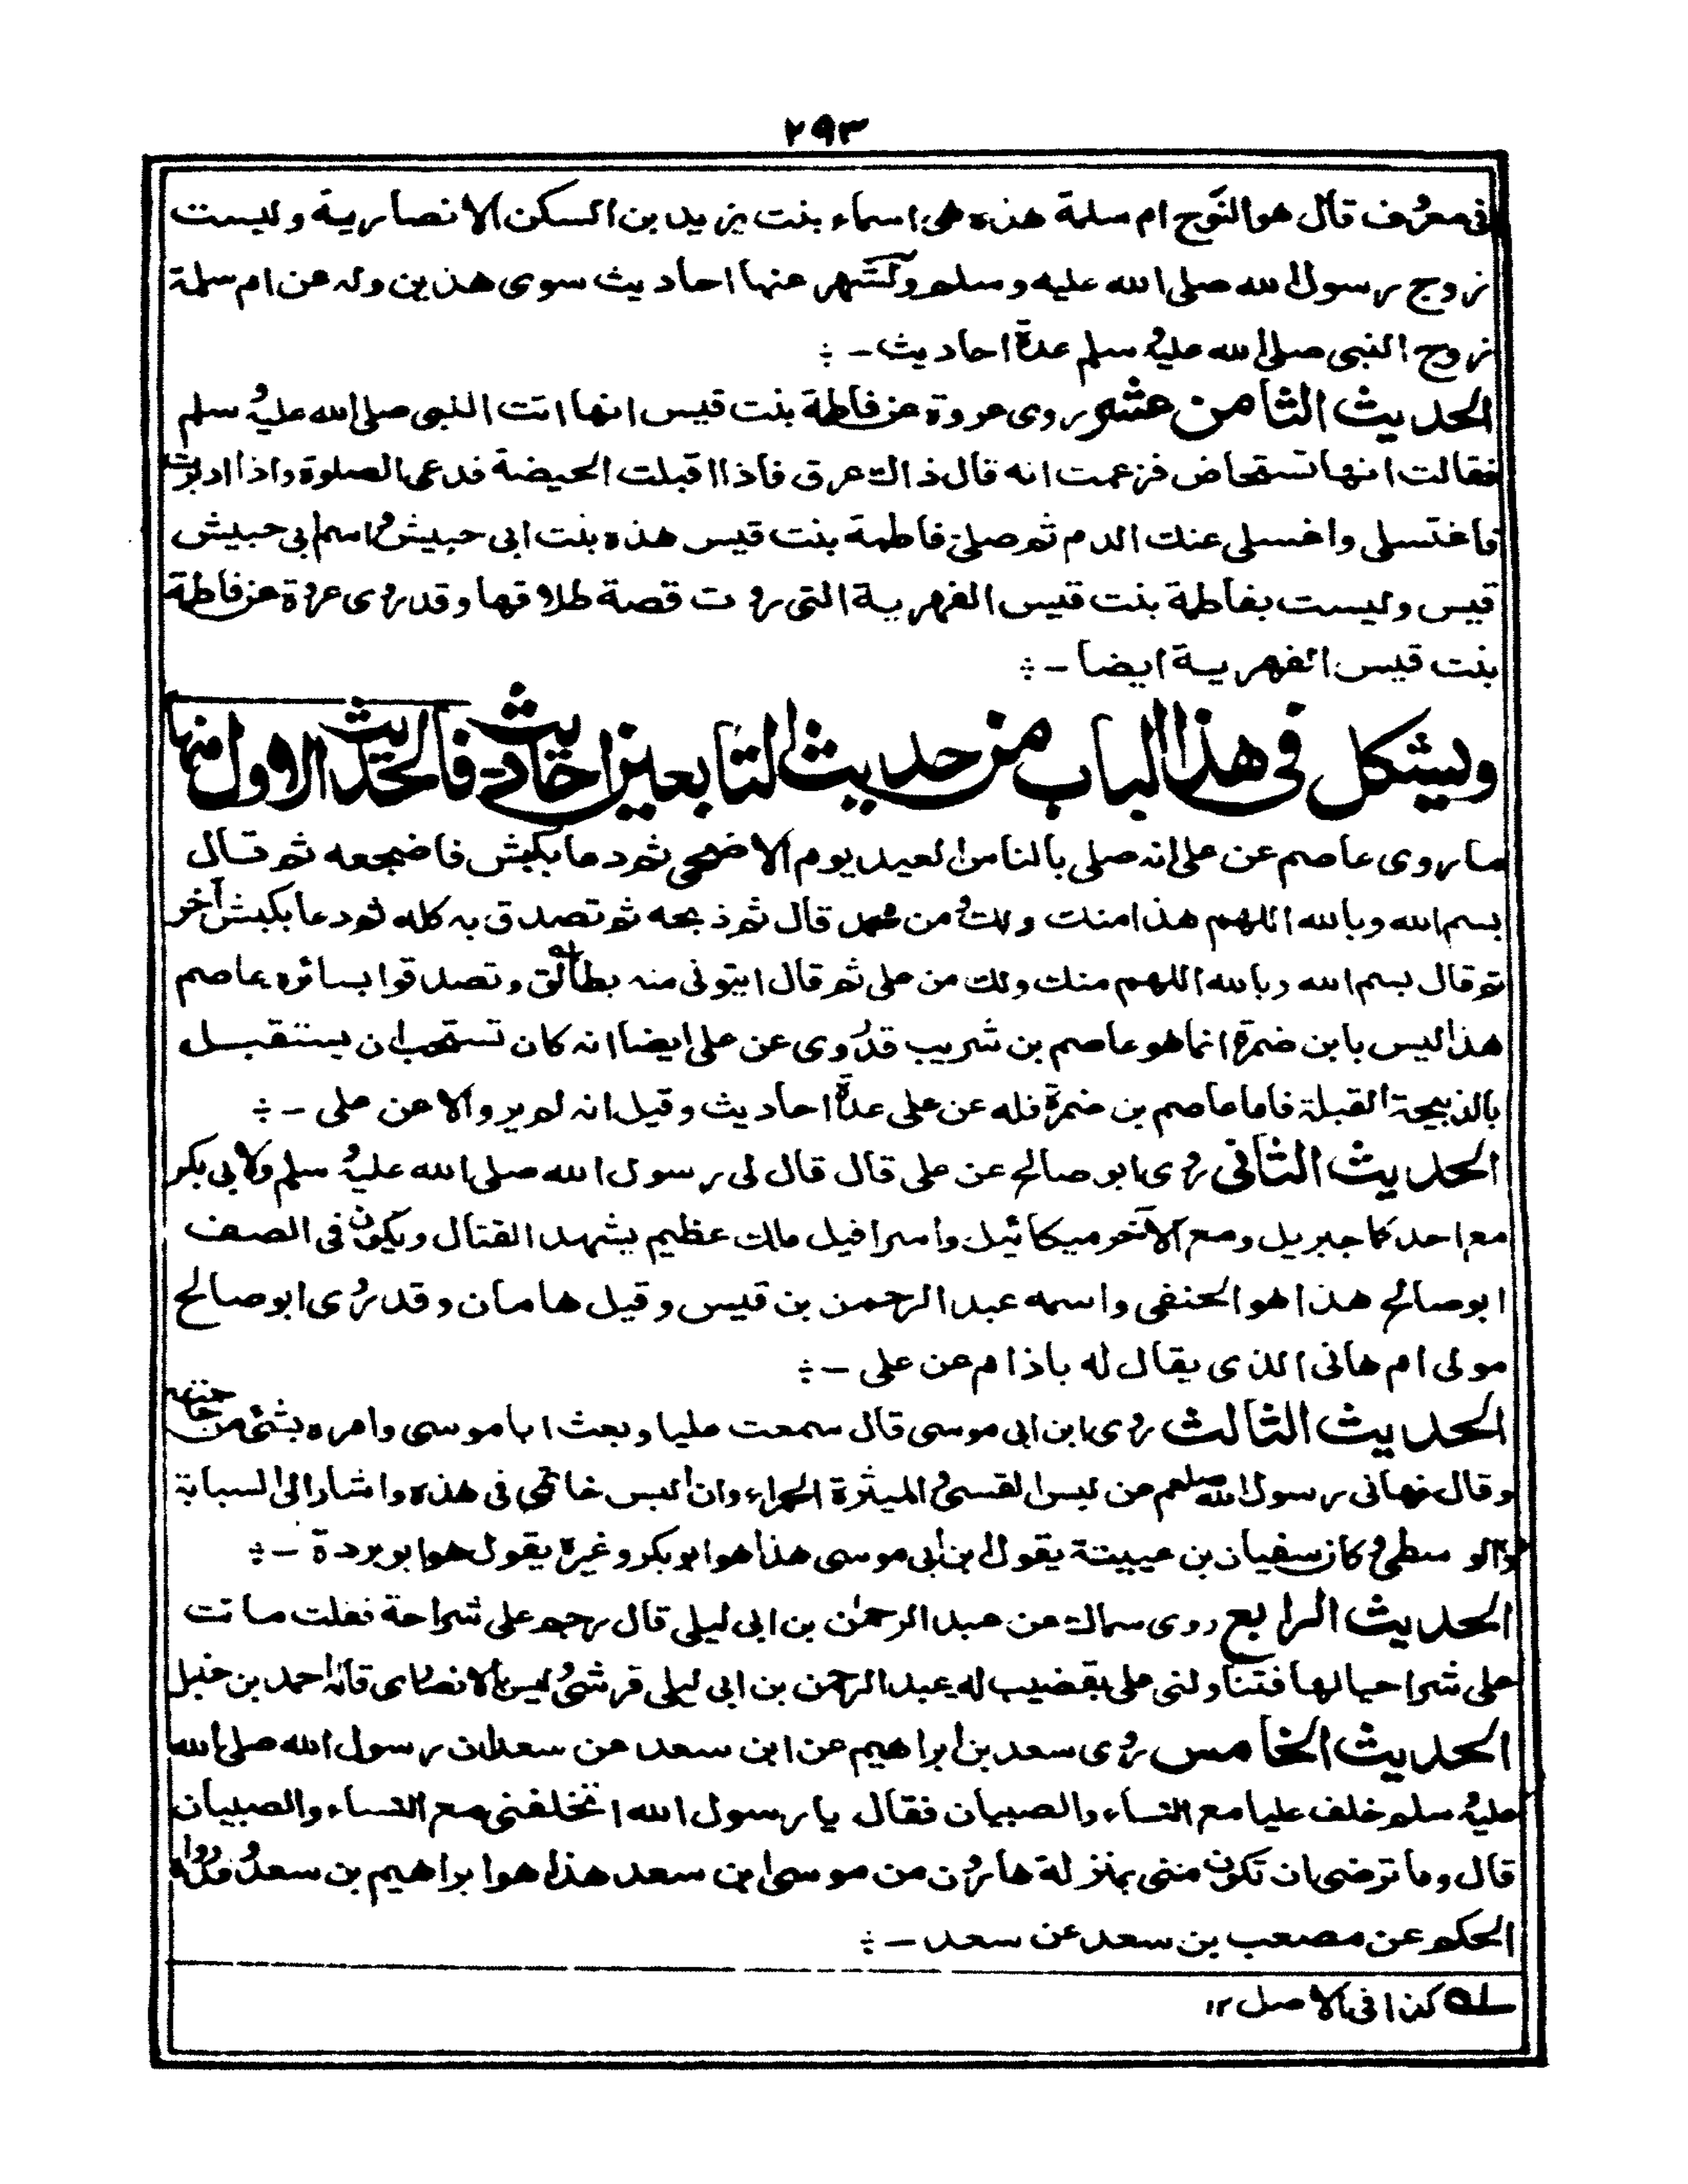 ٢٩٣
فى معروف قال هو النوح ام سلمة هذه هى اسماء بنت يزيد بن السكن الانصارية وليست
زوج رسول الله صلى الله عليه وسلم عنها احاديث سوى هذين وله عن ام سلمة
زوج النبى صلى الله عليه وسلم عدة احاديث ـ
الحديث الثامن عشر روى عروة عن فاطمة بنت قيس انها اتت النبى صلى الله عليه وسلم
فقالت انها تستحاض فزعمت انه قال ذالك عرق فاذا اقبلت الحيضة فدعى الصلوة واذا ادبرت
فاغتسلى واغسلى عنك الدم ثم صلى فاطمة بنت قيس هذه بنت ابى حبيش واسم ابى حبيش
قيس وليست بفاطمة بنت قيس الفهرية التى روت قصة طلاقها وقد روى عروة عن فاطمة
بنت قيس الفهرية ايضا ـ
ويشكل فى هذا الباب من حديث التابعين احاديث فالحديث الاول منها
ما روى عاصم عن على انه صلى بالناس العيد يوم الاضحى ثم دعا بكبش فاضجعه ثم قال
بسم الله وبالله اللهم هذا منك ولك ومن محمد قال ثم ذبحه ثم تصدق به كله ثم دعا بكبش آخر
ثم قال بسم الله وبالله اللهم منك ولك من على ثم قال ايتونى منه بطالق له وتصدقوا بسائره عاصم
هذا ليس بابن ضمرة انما هو عاصم بن شريب قد روى عن على ايضا انه كان تستحب ان يستقبل
بالذبيحة القبلة فاما عاصم بن ضمرة فله عن على عدة احاديث وقيل انه لم يرو الا عن على ـ
الحديث الثانى روى ابو صالح عن على قال قال لى رسول الله صلى الله عليه وسلم ولابى بكر
مع احد كما جبريل ومع الآخر ميكائيل واسرافيل ملك عظيم يشهد القتال ويكون فى الصف
ابو صالح هذا هو الحنفى واسمه عبد الرحمن بن قيس وقيل هامان وقد روى ابو صالح
مولى ام هانى الذى يقال له باذام عن على ـ
الحديث الثالث روى ابن ابى موسى قال سمعت عليا وبعث ابا موسى وامره بشئ من
وقال نهانى رسول الله صلعم عن لبس القسى والميثرة الحمراء وان البس خاتمى فى هذه واشار الى السبابة
والوسطى وكان سفيان بن عيينة يقول ابن ابى موسى هذا هو ابو بكر وغيره يقول هو ابو بردة ـ
الحديث الرابع روى سماك عن عبد الرحمٰن بن ابى ليلى قال رجم على شراحة فقلت ماتت
على شر احيالها فتناولنى على بقضيب له عبد الرحمن بن ابى ليلى قرشى وليس بالانصارى قاله احمد بن حنبل
الحديث الخامس روى سعد بن ابراهيم عن ابن سعد عن سعد ان رسول الله صلى الله
عليه وسلم خلف عليا مع النساء والصبيان فقال يا رسول الله اتخلفنى مع النساء والصبيان
قال وما ترضى ان تكون منى بمنزلة هارون من موسى ابن سعد هذا هو ابراهيم بن سعد وقد رواه
الحكم عن مصعب بن سعد عن سعد ـ
له كذا فى الاصل ١٢